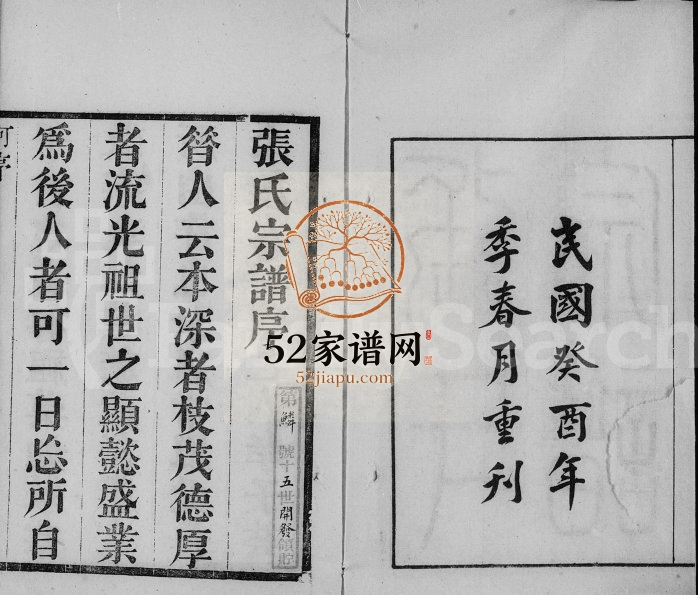 民國癸酉年
季春月重刋
張氏宗譜序
昝人云本深者枝茂德厚
者流光祖世之顯懿盛業
為後人者可一日忘所自
第鱗號十五世開發領貯
52家谱网
52jiapu.com
Search